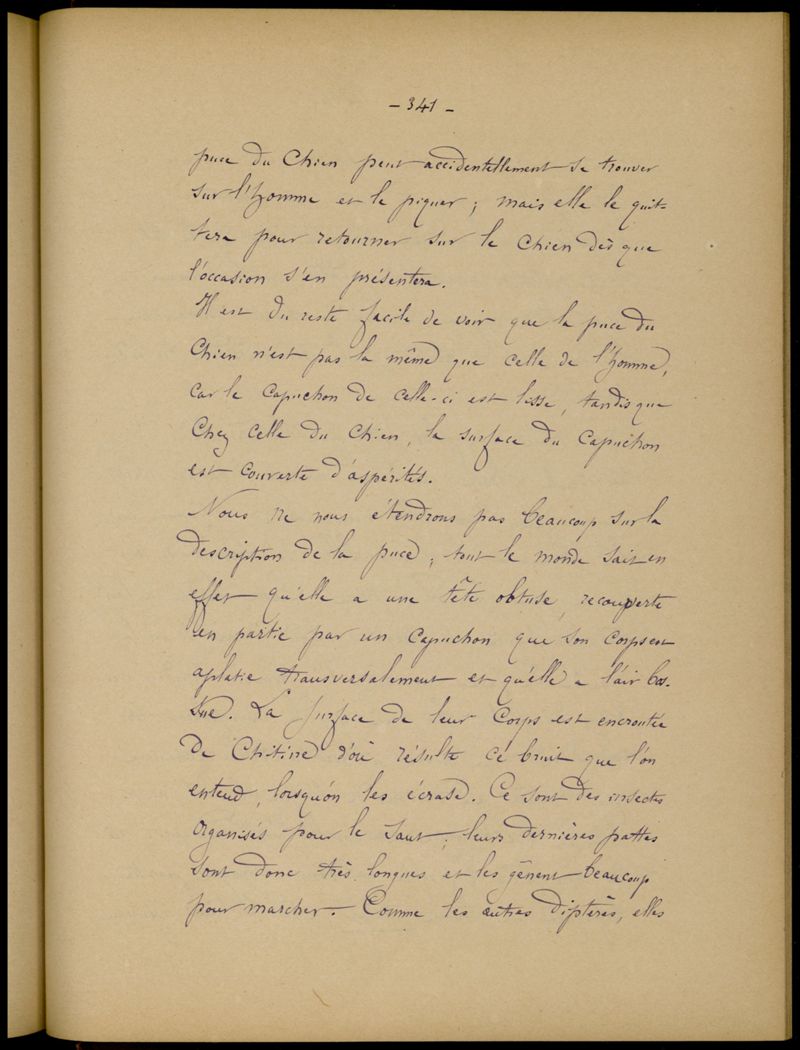 - 341 -
puce du Chien peut accidentellement se trouver
sur l'homme et le piquer ; mais elle le quit=
tera pour retourner sur le chien dès que
l'occasion s'en présentera.
Il est du reste facile de voir que la puce du
Chien n'est pas la même que celle de l'homme,
car le capuchon de celle-ci est lisse, tandis que
Chez celle du chien, la surface du capuchon
est couverte d'aspérités.
Nous ne nous étendrons pas beaucoup sur la
description de la puce ; tout le monde sait en
effet qu'elle a une tête obtuse, recouverte
en partie par un capuchon que son corps est
aplatie transversalement et qu'elle a l'air bos-
sue. La surface de leur corps est encroutée
de Chitine d'où résulte ce bruit que l'on
entend, lorsqu'on les écrase. Ce sont des insectes
organisés pour le saut ; leurs dernières pattes
sont donc très longues et les gênent beaucoup
pour marcher. Comme les autres diptères, elles